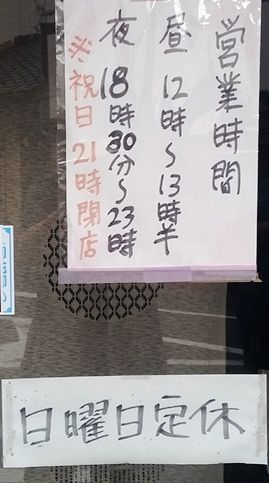 営業時間
昼 12時～13時半
夜 18時30分～23時
※祝日 21時閉店
日曜日定休